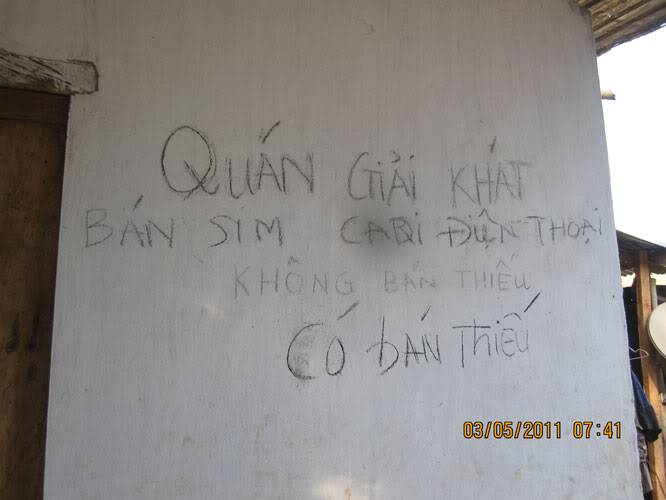 QUÁN GIẢI KHÁT
BÁN SIM CARD ĐIỆN THOẠI
KHÔNG BÁN THIẾU
CÓ BÁN THIẾU
03/05/2011 07:41